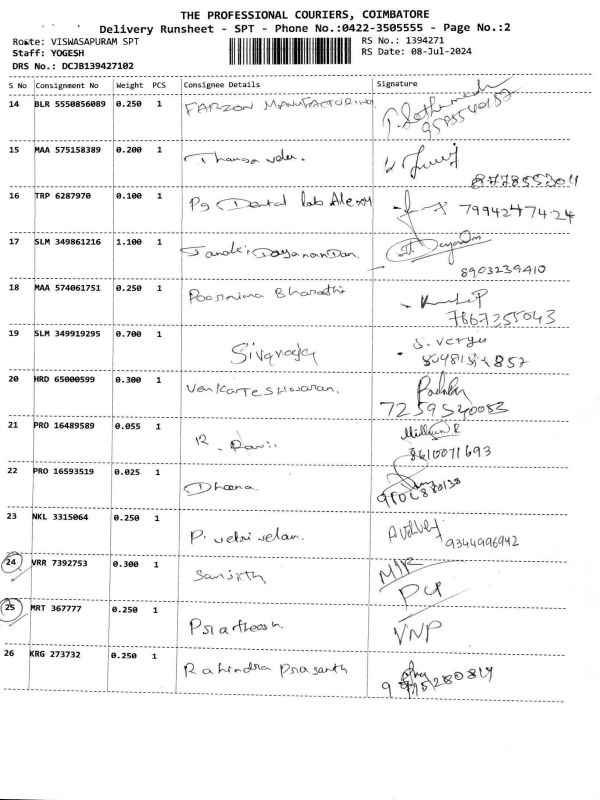 THE PROFESSIONAL COURIERS, COIMBATORE
Delivery Runsheet - SPT - Phone No.:0422-3505555 - Page No.:2
Route: VISWASAPURAM SPT
Staff: YOGESH
DRS No.: DCJB139427102
RS No.: 1394271
RS Date: 08-Jul-2024
S No Consignment No Weight PCS Consignee Details Signature
14 BLR 5550856089 0.250 1 FARZON MANUFACTURING
15 MAA 575158389 0.200 1
877855304
16 TRP 6287970 0.100 1 Pg Dental lab 7994247424
17 SLM 349861216 1.100 1 Janaki Dayanandan.
8903239410
18 MAA 574061751 0.250 1 Poornima Bharathi
7867255043
19 SLM 349919295 0.700 1 Sivaraja
20 HRD 65000599 0.300 1 Venkarteshwaran.
7259520083
21 PRO 16489589 0.055 1 R.
8610071693
22 PRO 16593519 0.025 1 Dheena
23 NKL 3315064 0.250 1 P. vetri velan.
9344996942
24 VRR 7392753 0.300 1 Sanjith
25 MRT 367777 0.250 1
VNP
26 KRG 273732 0.250 1 Rahindra Prasanth